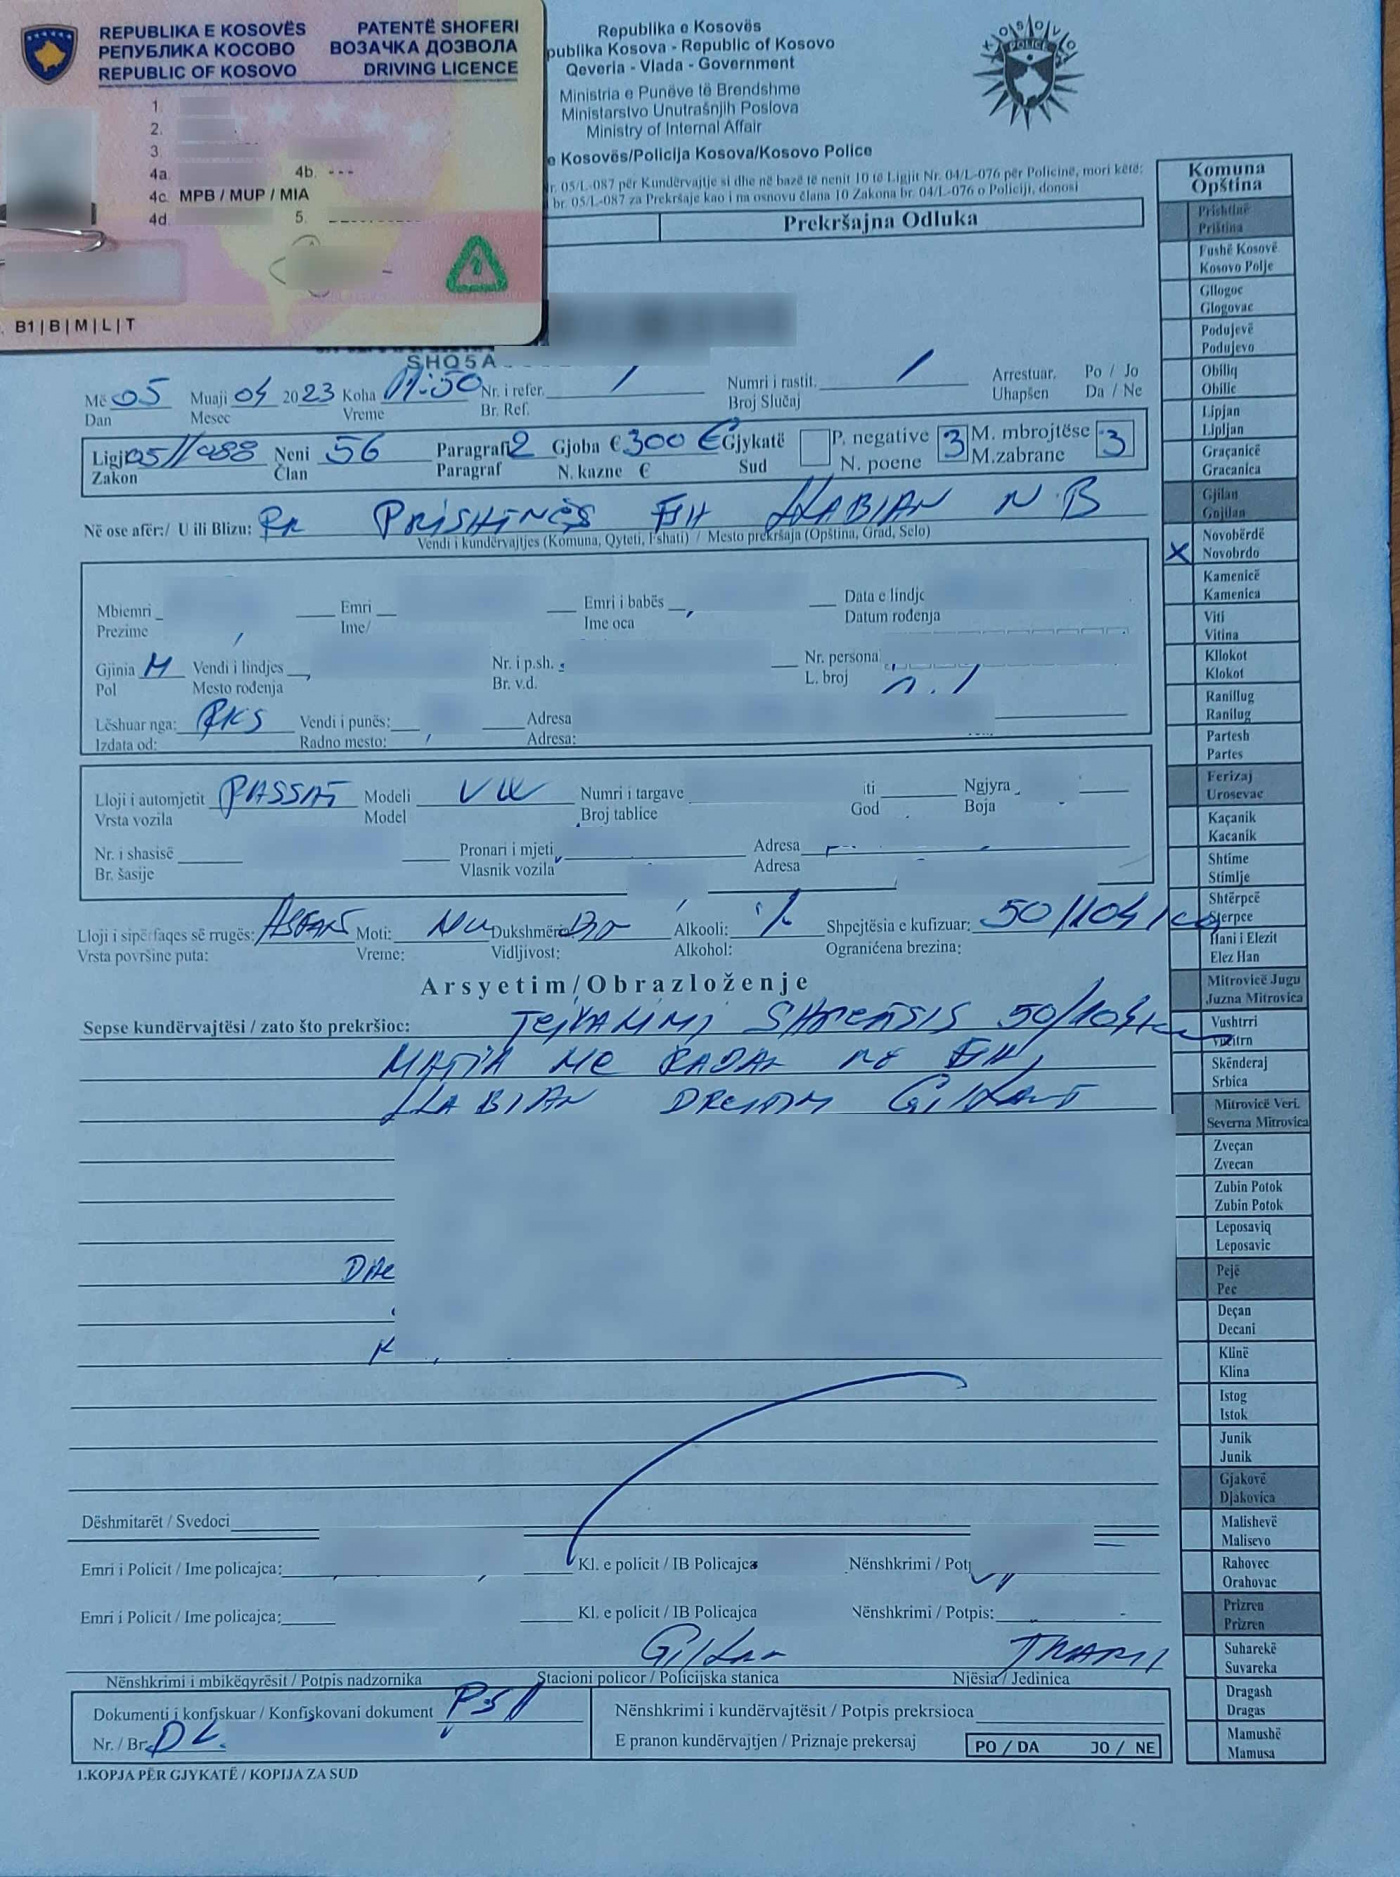 REPUBLIKA E KOSOVËS PATENTË SHOFERI
РЕПУБЛИКА КОСОВО ВОЗАЧКА ДОЗВОЛА
REPUBLIC OF KOSOVO DRIVING LICENCE
1.
2.
3
4a 4b. ---
4c. MPB / MUP / MIA
4d. 5.
B1 | B | M | L | T
Republika e Kosovës
publika Kosova - Republic of Kosovo
Qeveria - Vlada - Government
Ministria e Punëve të Brendshme
Ministarstvo Unutrašnjih Poslova
Ministry of Internal Affair
e Kosovës/Policija Kosova/Kosovo Police
KOSOVO
POLICE
nr. 05/L-087 për Kundërvajtje si dhe në bazë të nenit 10 të Ligjit Nr. 04/L-076 për Policinë, mori këtë:
br. 05/L-087 za Prekršaje kao i na osnovu člana 10 Zakona br. 04/L-076 o Policiji, donosi
Prekršajna Odluka
SHQ5A
Më 05 Muaji 04 2023 Koha 11:50 Nr. i refer. / Numri i rastit. / Arrestuar. Po / Jo
Dan Mesec Vreme Br. Ref. Broj Slučaj Uhapšen Da / Ne
Ligji 05/L-088 Neni 56 Paragrafi 2 Gjoba € 300 € Gjykatë P. negative 3 M. mbrojtëse 3
Zakon Član Paragraf N. kazne € Sud N. poene M.zabrane
Në ose afër:/ U ili Blizu: RR PRISHINËS FSH LLABIAN N B
Vendi i kundërvajtjes (Komuna, Qyteti, Fshati) / Mesto prekršaja (Opština, Grad, Selo)
Mbiemri Emri Emri i babës Data e lindjc
Prezime Ime/ Ime oca Datum rođenja
Gjinia M Vendi i lindjes Nr. i p.sh. Nr. persona
Pol Mesto rođenja Br. v.d. L. broj
Lëshuar nga: RKS Vendi i punës: Adresa
Izdata od: Radno mesto: Adresa:
Lloji i automjetit PASSAT Modeli VW Numri i targave iti Ngjyra
Vrsta vozila Model Broj tablice God Boja
Nr. i shasisë Pronari i mjeti Adresa
Br. šasije Vlasnik vozila Adresa
Lloji i sipërfaqes së rrugës: Moti: Dukshmëria Alkooli: Shpejtësia e kufizuar: 50/104
Vrsta površine puta: Vreme: Vidljivost: Alkohol: Ograničena brezina:
Arsyetim/Obrazloženje
Sepse kundërvajtësi / zato što prekršioc: TEJKALIMI SHPEJTSIS 50/104
MATJA ME RADAR NË FSH,
LLABIAN DREJTIM GJILANIT
DRE
K
Dëshmitarët / Svedoci
Emri i Policit / Ime policajca: Kl. e policit / IB Policajca Nënshkrimi / Potp
Emri i Policit / Ime policajca: Kl. e policit / IB Policajca Nënshkrimi / Potpis:
Gjilan
Nënshkrimi i mbikëqyrësit / Potpis nadzornika Stacioni policor / Policijska stanica Njësia / Jedinica
Dokumenti i konfiskuar / Konfiskovani dokument PSH
Nr. / Br. DL
Nënshkrimi i kundërvajtësit / Potpis prekrsioca
E pranon kundërvajtjen / Priznaje prekersaj PO / DA JO / NE
1.KOPJA PËR GJYKATË / KOPIJA ZA SUD
Komuna
Opština
Prishtinë
Priština
Fushë Kosovë
Kosovo Polje
Gllogoc
Glogovac
Podujevë
Podujevo
Obiliq
Obilic
Lipjan
Lipljan
Graçanicë
Gracanica
Gjilan
Gnjilan
X Novobërdë
Novobrdo
Kamenicë
Kamenica
Viti
Vitina
Kllokot
Klokot
Ranillug
Ranilug
Partesh
Partes
Ferizaj
Urosevac
Kaçanik
Kacanik
Shtime
Stimlje
Shtërpcë
Sterpce
Hani i Elezit
Elez Han
Mitrovicë Jugu
Juzna Mitrovica
Vushtrri
Vucitrn
Skënderaj
Srbica
Mitrovicë Veri.
Severna Mitrovica
Zveçan
Zvecan
Zubin Potok
Zubin Potok
Leposaviq
Leposavic
Pejë
Pec
Deçan
Decani
Klinë
Klina
Istog
Istok
Junik
Junik
Gjakovë
Djakovica
Malishevë
Malisevo
Rahovec
Orahovac
Prizren
Prizren
Suharekë
Suvareka
Dragash
Dragas
Mamushë
Mamusa